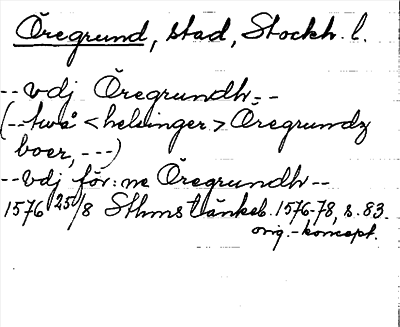 Öregrund, stad, Stockh. l.
-- vdj Öregrundh --
(-- twå <helsinger> Öregrundz
boer, ---)
-- vdj för:ne Öregrundh --
1576 25/8 Sthms tänkeb. 1576-78, s. 83.
orig.-koncept.